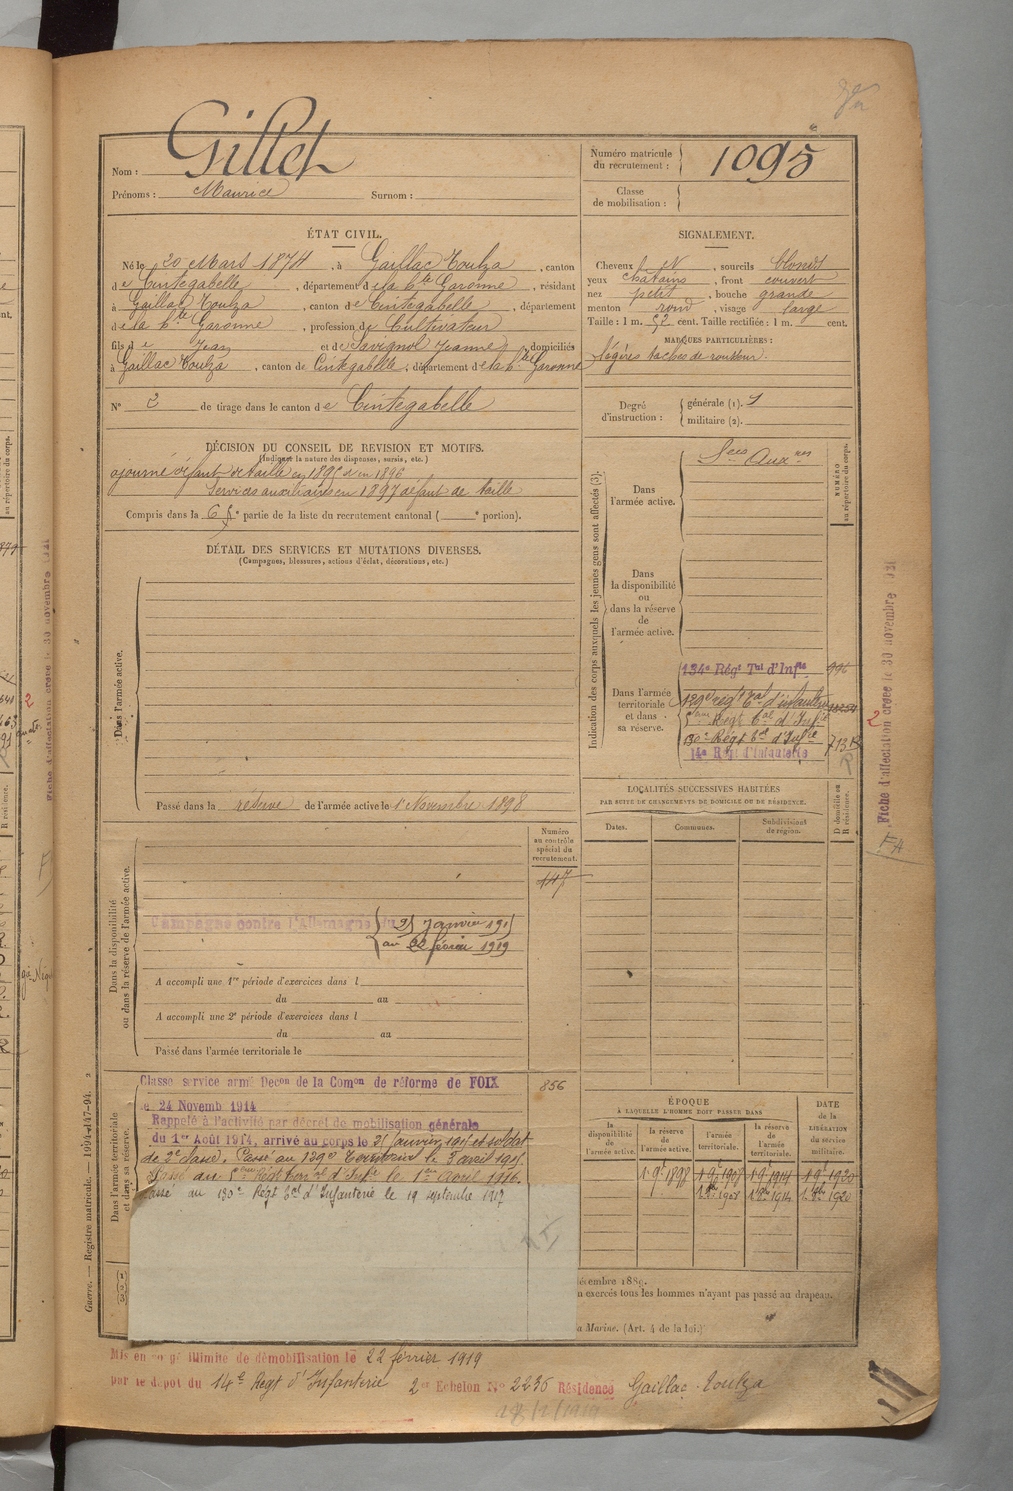 Gillet
Nom :
Prénoms : Maurice Surnom :
Numéro matricule du recrutement : 1095
Classe de mobilisation :
ÉTAT CIVIL.
Né le 20 Mars 1874, à Gaillac Toulza, canton
de Cintegabelle, département de la hte Garonne, résidant
à Gaillac Toulza, canton de Cintegabelle, département
de la hte Garonne, profession de Cultivateur
fils de Jean et de Savignol Jeanne, domiciliés
à Gaillac Toulza, canton de Cintegabelle, département de la hte Garonne
N° 2 de tirage dans le canton de Cintegabelle
SIGNALEMENT.
Cheveux, sourcils blonds
yeux chatains, front couvert
nez petit, bouche grande
menton rond, visage large
Taille : 1 m. 52 cent. Taille rectifiée : 1 m. cent.
MARQUES PARTICULIÈRES :
légères taches de rousseur.
Degré d'instruction : générale (1).
militaire (2).
DÉCISION DU CONSEIL DE REVISION ET MOTIFS.
(Indiquer la nature des dispenses, sursis, etc.)
ajourné défaut de taille en 1895 et en 1896
Services auxiliaires en 1897 défaut de taille
Compris dans la 6e partie de la liste du recrutement cantonal ( e portion).
DÉTAIL DES SERVICES ET MUTATIONS DIVERSES.
(Campagnes, blessures, actions d'éclat, décorations, etc.)
Dans l'armée active.
Passé dans la réserve de l'armée active le 1er Novembre 1898
Indication des corps auxquels les jeunes gens sont affectés (3).
NUMÉRO au répertoire du corps.
Dans l'armée active.
Sces Auxres
Dans la disponibilité ou dans la réserve de l'armée active.
Dans l'armée territoriale et dans sa réserve.
134e Régt Tal d'Infie
129e régt tal d'infanterie
Régt tal d'Infie
130e Régt tal d'Infie
14e Régt d'Infanterie
Fiche d'affectation créée le 30 novembre
2
FA
LOCALITÉS SUCCESSIVES HABITÉES
PAR SUITE DE CHANGEMENTS DE DOMICILE OU DE RÉSIDENCE.
Dates. Communes. Subdivisions de région.
D domicile ou R résidence.
Dans la disponibilité ou dans la réserve de l'armée active.
Numéro au contrôle spécial du recrutement.
147
Campagne contre l'Allemagne du 25 Janvier 1915
au 22 février 1919
A accompli une 1re période d'exercices dans l
du au
A accompli une 2e période d'exercices dans l
du au
Passé dans l'armée territoriale le
Dans l'armée territoriale et dans sa réserve.
Classé service armé Decon de la Comon de réforme de FOIX
856
le 24 Novemb 1914
Rappelé à l'activité par décret de mobilisation générale
du 1er Août 1914, arrivé au corps le 25 Janvier 1915 et soldat
de 2e classe. Passé au 129e Territorial le 5 avril 1915.
Passé au Régt territal d'Infie le 1er Avril 1916.
Passé au 130e Régt tal d'Infanterie le 19 septembre 1917
ÉPOQUE
À LAQUELLE L'HOMME DOIT PASSER DANS
DATE de la LIBÉRATION du service militaire.
la disponibilité de l'armée active. la réserve de l'armée active. l'armée territoriale. la réserve de l'armée territoriale.
1 9e 1898 1 9e 1908 1 9e 1914 1 9e 1920
1908 1914 1920
décembre 1889.
n exercés tous les hommes n'ayant pas passé au drapeau.
a Marine. (Art. 4 de la loi.)
Guerre. — Registre matricule. — 1194-147-94.
Mis en congé illimité de démobilisation le 22 février 1919
par le dépôt du 14e Régt d'Infanterie 2e Echelon No 2236 Résidence Gaillac-Toulza